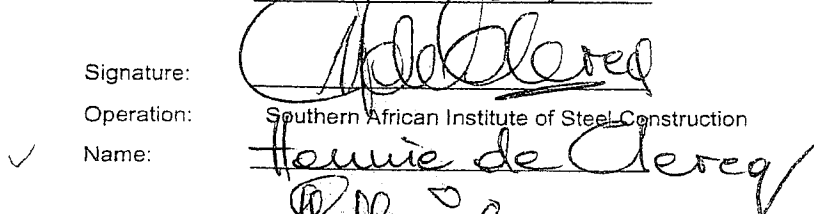 Signature: de Clercq
Operation: Southern African Institute of Steel Construction
✓ Name: Hennie de Clercq